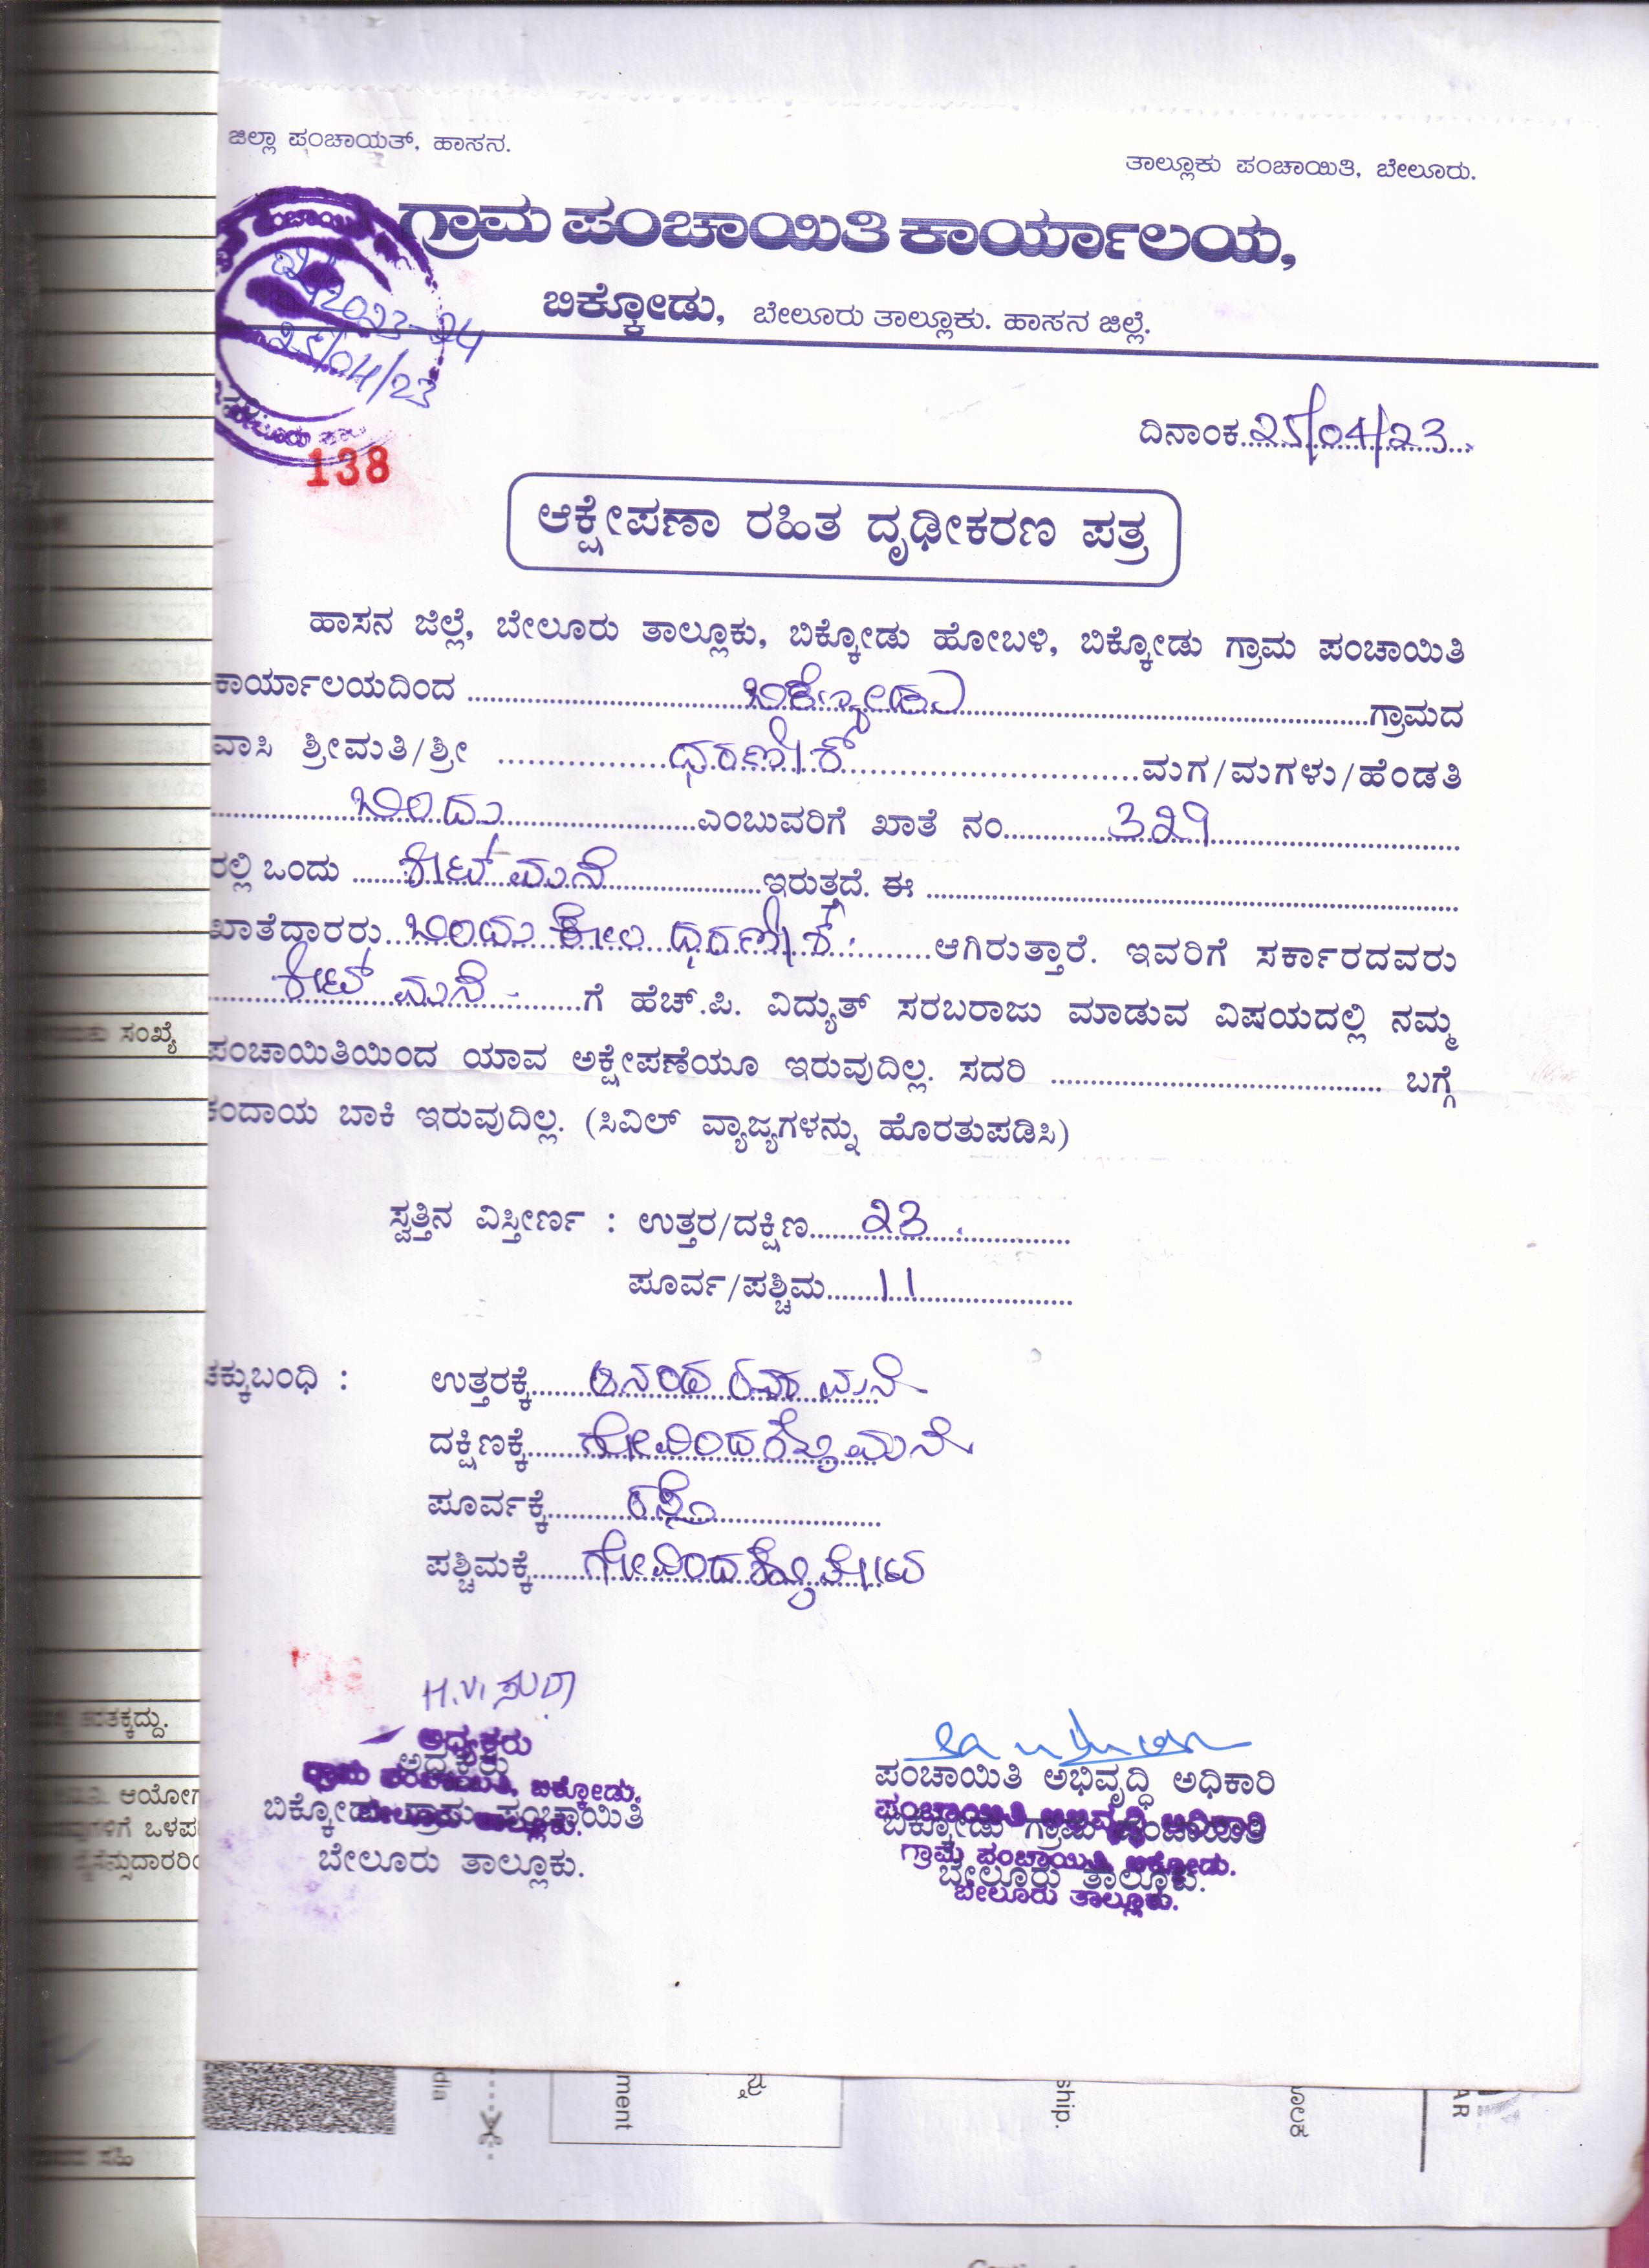 ಜಿಲ್ಲಾ ಪಂಚಾಯತ್, ಹಾಸನ.
ತಾಲ್ಲೂಕು ಪಂಚಾಯಿತಿ, ಬೇಲೂರು.
ಗ್ರಾಮ ಪಂಚಾಯಿತಿ ಕಾರ್ಯಾಲಯ,
ಬಿಕ್ಕೋಡು, ಬೇಲೂರು ತಾಲ್ಲೂಕು. ಹಾಸನ ಜಿಲ್ಲೆ.
2023-24
25/04/23
ದಿನಾಂಕ 25/04/23
138
ಆಕ್ಷೇಪಣಾ ರಹಿತ ದೃಢೀಕರಣ ಪತ್ರ
ಹಾಸನ ಜಿಲ್ಲೆ, ಬೇಲೂರು ತಾಲ್ಲೂಕು, ಬಿಕ್ಕೋಡು ಹೋಬಳಿ, ಬಿಕ್ಕೋಡು ಗ್ರಾಮ ಪಂಚಾಯಿತಿ
ಕಾರ್ಯಾಲಯದಿಂದ ಬಿಕ್ಕೋಡು ಗ್ರಾಮದ
ವಾಸಿ ಶ್ರೀಮತಿ/ಶ್ರೀ ಧರಣೇಶ್ ಮಗ/ಮಗಳು/ಹೆಂಡತಿ
ಬಿಂದು ಎಂಬುವರಿಗೆ ಖಾತೆ ನಂ 329
ರಲ್ಲಿ ಒಂದು ಶೀಟ್ ಮನೆ ಇರುತ್ತದೆ. ಈ
ಖಾತೆದ್ದಾರರು ಬಿಂದು ಕೋಂ ಧರಣೇಶ್ ಆಗಿರುತ್ತಾರೆ. ಇವರಿಗೆ ಸರ್ಕಾರದವರು
ಶೀಟ್ ಮನೆ ಗೆ ಹೆಚ್.ಪಿ. ವಿದ್ಯುತ್ ಸರಬರಾಜು ಮಾಡುವ ವಿಷಯದಲ್ಲಿ ನಮ್ಮ
ಪಂಚಾಯಿತಿಯಿಂದ ಯಾವ ಅಕ್ಷೇಪಣೆಯೂ ಇರುವುದಿಲ್ಲ. ಸದರಿ ಬಗ್ಗೆ
ಕಂದಾಯ ಬಾಕಿ ಇರುವುದಿಲ್ಲ. (ಸಿವಿಲ್ ವ್ಯಾಜ್ಯಗಳನ್ನು ಹೊರತುಪಡಿಸಿ)
ಸ್ವತ್ತಿನ ವಿಸ್ತೀರ್ಣ : ಉತ್ತರ/ದಕ್ಷಿಣ 23
ಪೂರ್ವ/ಪಶ್ಚಿಮ 11
ಚಕ್ಕುಬಂಧಿ : ಉತ್ತರಕ್ಕೆ ಮನೆ
ದಕ್ಷಿಣಕ್ಕೆ ಗೋವಿಂದಶೆಟ್ಟಿ ಮನೆ
ಪೂರ್ವಕ್ಕೆ ರಸ್ತೆ
ಪಶ್ಚಿಮಕ್ಕೆ ಗೋವಿಂದಶೆಟ್ಟಿ
ಅಧ್ಯಕ್ಷರು
ಅಧ್ಯಕ್ಷರು
ಗ್ರಾಮ ಪಂಚಾಯಿತಿ, ಬಿಕ್ಕೋಡು.
ಬಿಕ್ಕೋಡು ಗ್ರಾಮ ಪಂಚಾಯಿತಿ
ಬೇಲೂರು ತಾಲ್ಲೂಕು.
ಬೇಲೂರು ತಾಲ್ಲೂಕು.
ಪಂಚಾಯಿತಿ ಅಭಿವೃದ್ಧಿ ಅಧಿಕಾರಿ
ಪಂಚಾಯಿತಿ ಅಭಿವೃದ್ಧಿ ಅಧಿಕಾರಿ
ಬಿಕ್ಕೋಡು ಗ್ರಾಮ ಪಂಚಾಯಿತಿ
ಗ್ರಾಮ ಪಂಚಾಯಿತಿ, ಬಿಕ್ಕೋಡು.
ಬೇಲೂರು ತಾಲ್ಲೂಕು.
ಬೇಲೂರು ತಾಲ್ಲೂಕು.
ಸಂಖ್ಯೆ
ಆಯೋಗ
ment
ship.
AR